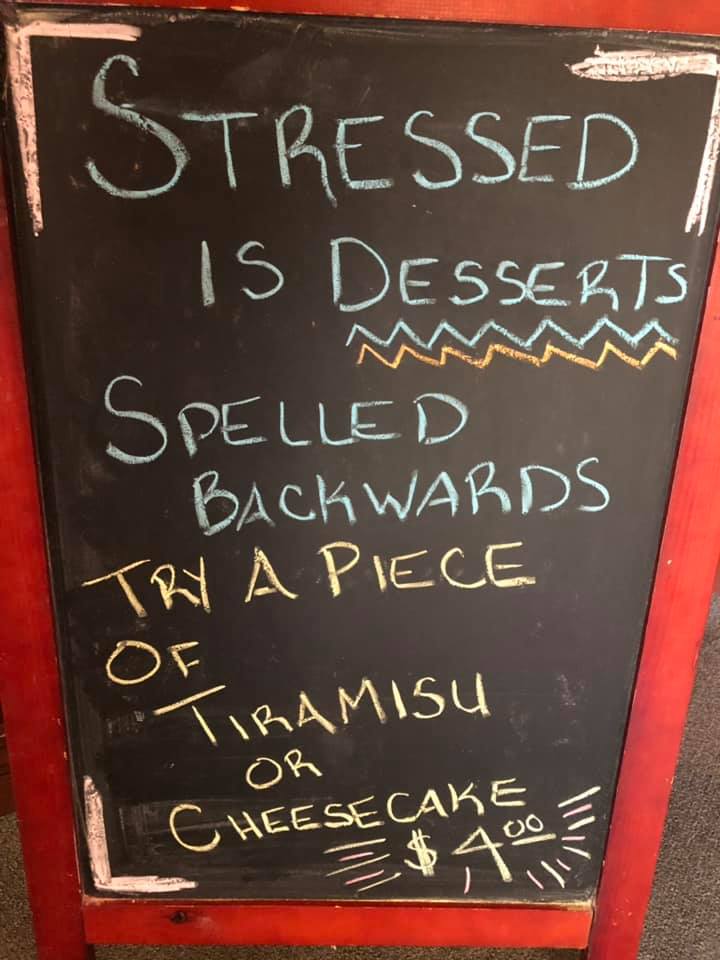 STRESSED
IS DESSERTS
SPELLED
BACKWARDS
TRY A PIECE
OF
TIRAMISU
OR
CHEESECAKE
$4.00